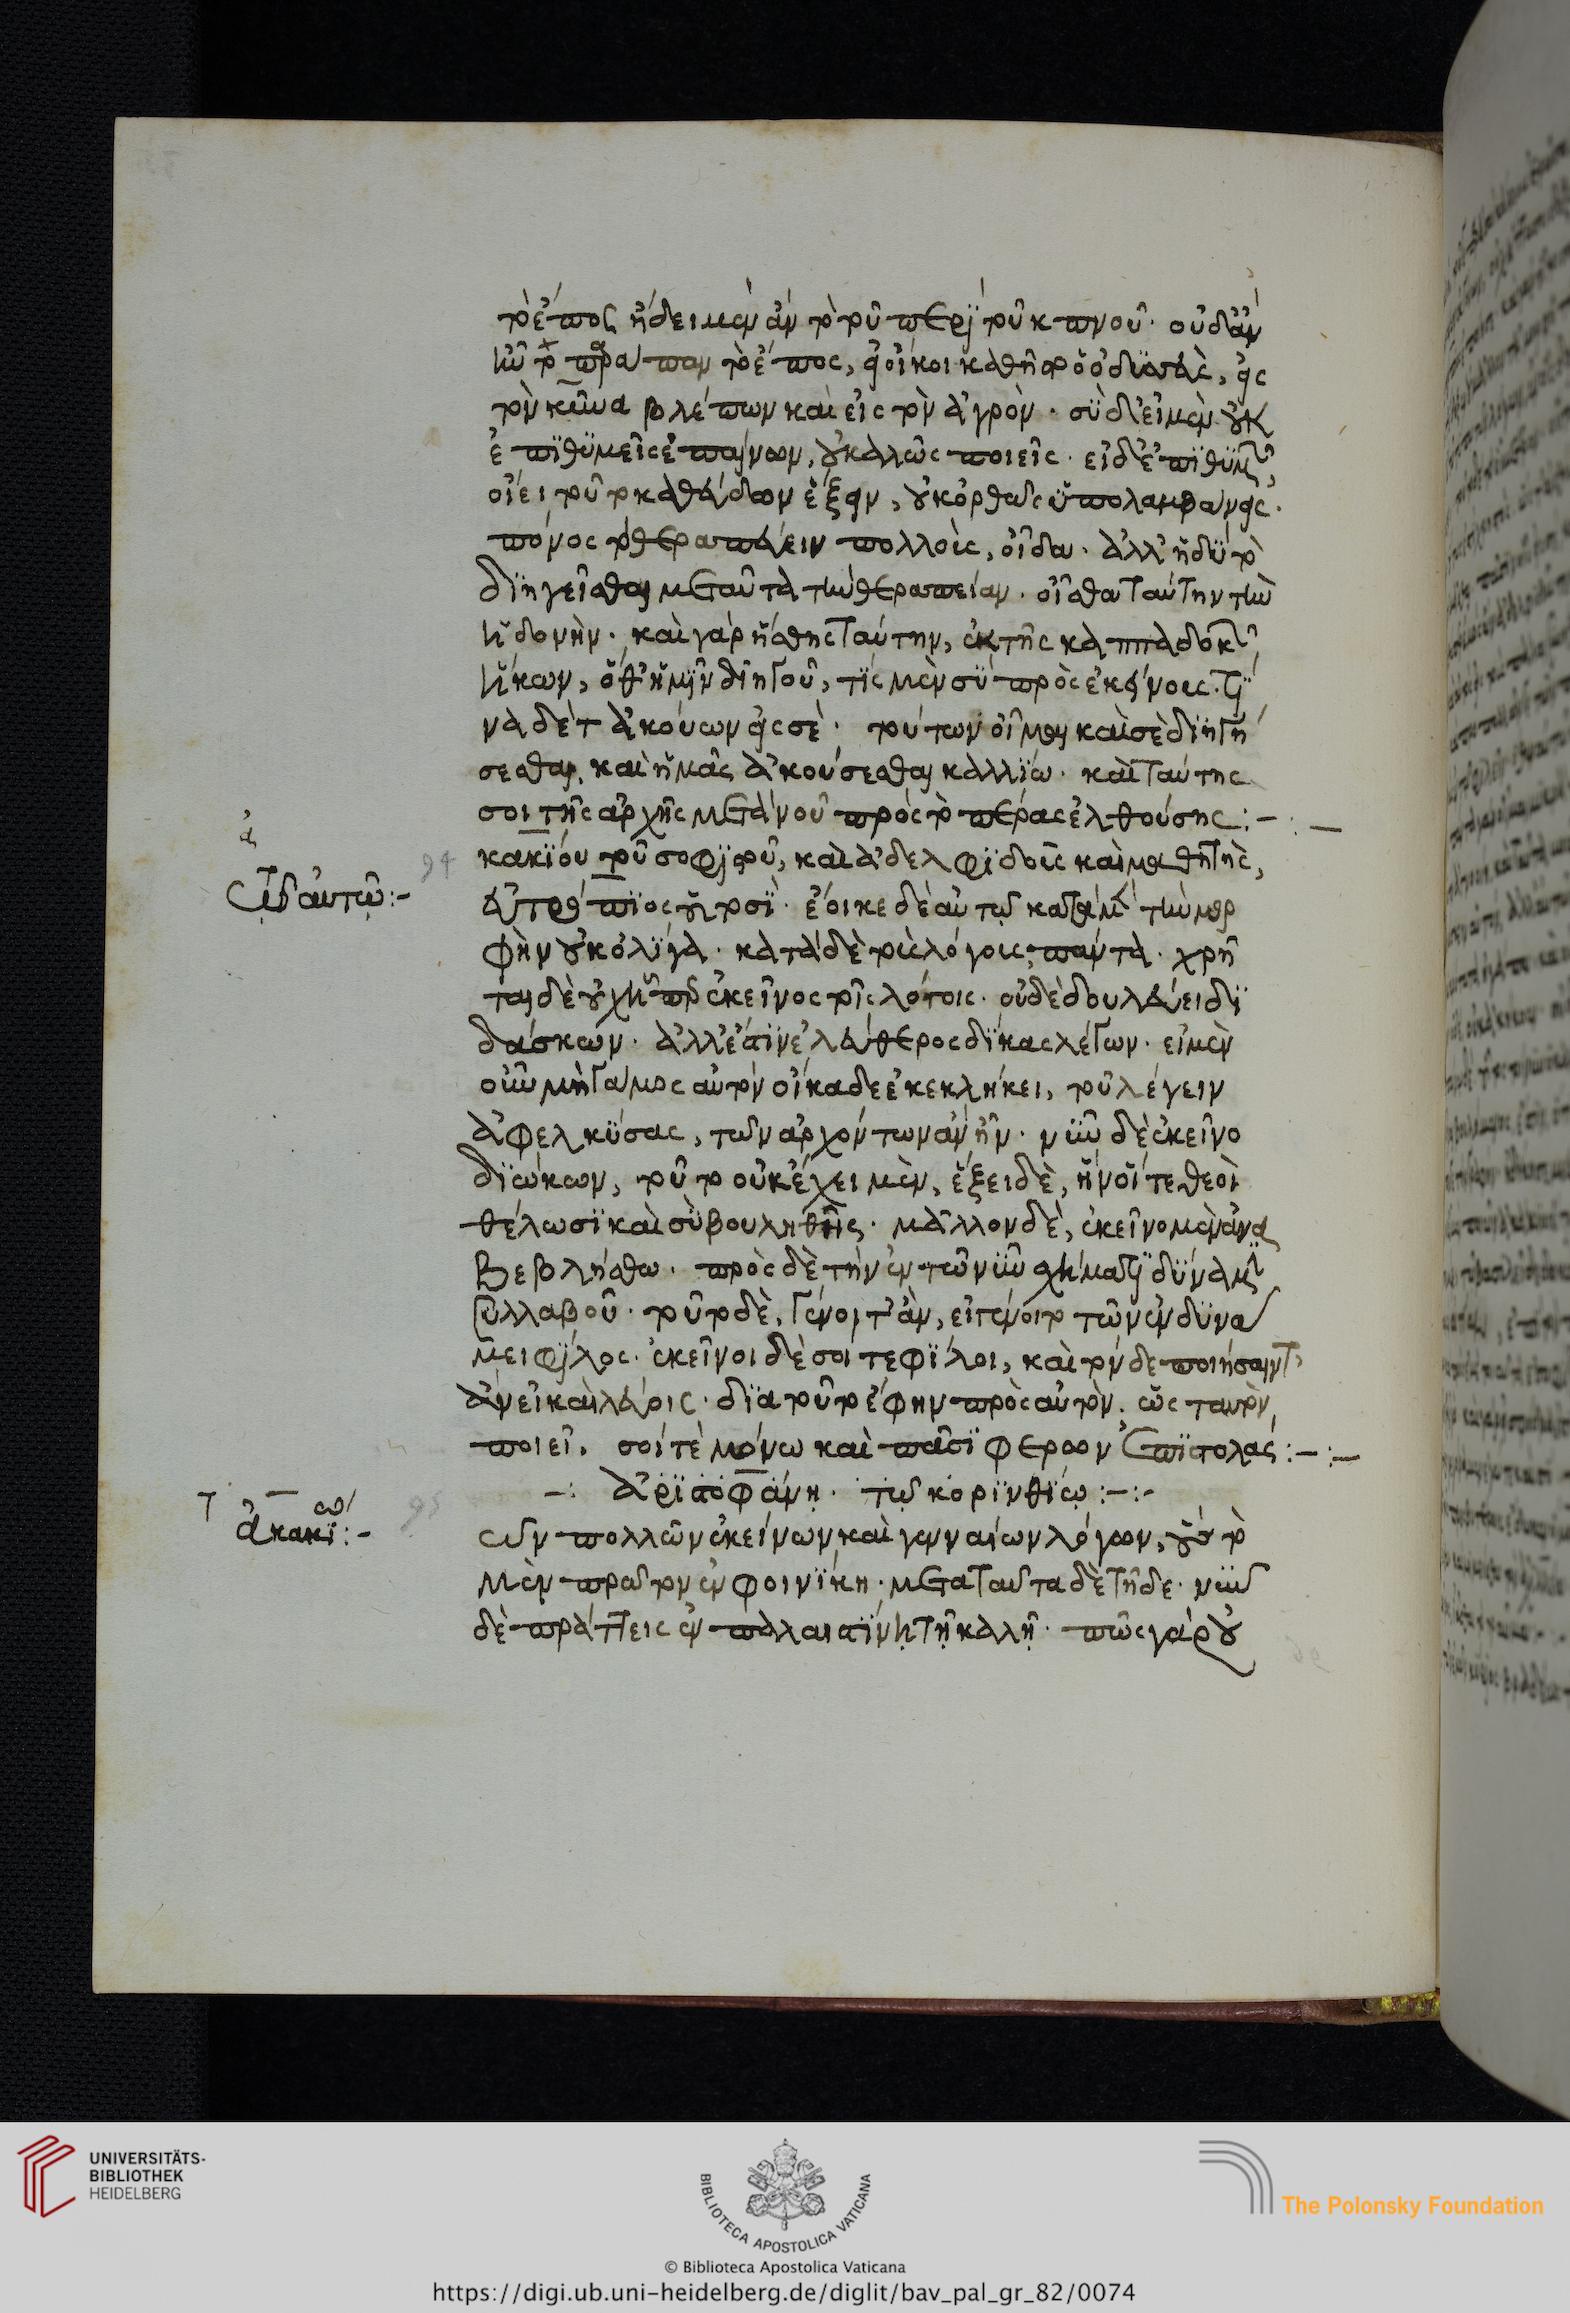 τὸ ἔπος ἤδειμεν ἂν τὸ τοῦ περὶ τοῦ καπνοῦ. οὐδ' ἂν
ἦν τὸ πρᾶγμα πᾶν τὸ ἔπος, εἰ οἴκοι καθῆστο ὀδυσσεὺς, εἰς
τὸν κῦμα βλέπων καὶ εἰς τὸν ἀγρὸν. σὺ δ' εἰ μὲν οὐκ
ἐπιθυμεῖς ἐπαίνων, οὐ καλῶς ποιεῖς. εἰ δ' ἐπιθυμεῖς,
οἴει τοῦτο καθεύδων ἕξειν, οὐκ ὀρθῶς ὑπολαμβάνεις.
πόνος τὸ θεραπεύειν πολλοὺς, οἶδα. ἀλλ' ἡδὺ τὸ
διηγεῖσθαι μετὰ ταῦτα τὴν θεραπείαν. οἶσθα ταύτην τὴν
ἡδονὴν. καὶ γὰρ ἥσθης ταύτην, ἐκ τῆς καππαδοκίας
ἥκων, ὅθ' ἡμῖν διηγοῦ, τίς μὲν σὺ πρὸς ἐκείνους. τί
να δέ τ' ἀκούων εἰς σὲ. τούτων οἶμαι καὶ σὲ διηγή
σεσθαι, καὶ ἡμᾶς ἀκούσεσθαι καλλίω. καὶ ταύτης
σοι τῆς ἀρχῆς μετὰ νοῦ πρὸς τὸ πέρας ἐλθούσης:-:-
τῷ αὐτῷ:-
κακίου τοῦ σοφιστοῦ, καὶ ἀδελφιδοῦς καὶ μαθητὴς,
εὐτρόπιος οὑτοσὶ. ἔοικε δὲ αὐτῷ κατὰ μὲν τὴν μορ
φὴν οὐκ ὀλίγα. κατὰ δὲ τοὺς λόγους, πάντα. χρῆ
ται δὲ οὐχ ᾗπερ ἐκεῖνος τοῖς λόγοις. οὐδὲ δουλεύει δι
δάσκων. ἀλλ' ἔστιν ἐλεύθερος δίκας λέγων. εἰ μὲν
οὖν μὴ γάμος αὐτὸν οἴκαδε ἐκεκλήκει, τοῦ λέγειν
ἀφελκύσας, τῶν ἀρχόντων ἂν ἦν. νῦν δὲ ἐκεῖνο
διώκων, τοῦτο οὐκ ἔχει μὲν, ἕξει δὲ, ἢν οἵ τε θεοὶ
θέλωσι καὶ σὺ βουληθῇς. μᾶλλον δὲ, ἐκεῖνο μὲν ἀνα
βεβλήσθω. πρὸς δὲ τὴν ἐν τῷ νῦν σχήματι δύναμιν
συλλαβοῦ. τοῦτο δὲ, γένοιτ' ἂν, εἰ γένοιτο τῶν ἐν δυνά
μει φίλος. ἐκεῖνοι δὲ σοί τε φίλοι, καὶ τόνδε ποιήσαιντ'
ἂν εἰ κελεύοις. διὰ τοῦτο ἔφην πρὸς αὐτὸν. ὡς ταυτὸν
ποιεῖ, σοί τὲ μόνω καὶ πᾶσι φέρων ἐπιστολάς:-:-
-: ἀριστοφάνῃ. τῷ κορινθίῳ:-:-
ἀκακίω:-
τῶν πολλῶν ἐκείνων καὶ γενναίων λόγων, οὓς τὸ
μὲν πρῶτον ἐν φοινίκη. μετὰ ταῦτα δὲ τῇδε. νῦν
δὲ πράττεις ἐν παλαιστίνῃ τῇ καλῇ. πῶς γὰρ οὐ
94
95
UNIVERSITÄTS-
BIBLIOTHEK
HEIDELBERG
BIBLIOTECA APOSTOLICA VATICANA
© Biblioteca Apostolica Vaticana
The Polonsky Foundation
https://digi.ub.uni-heidelberg.de/diglit/bav_pal_gr_82/0074